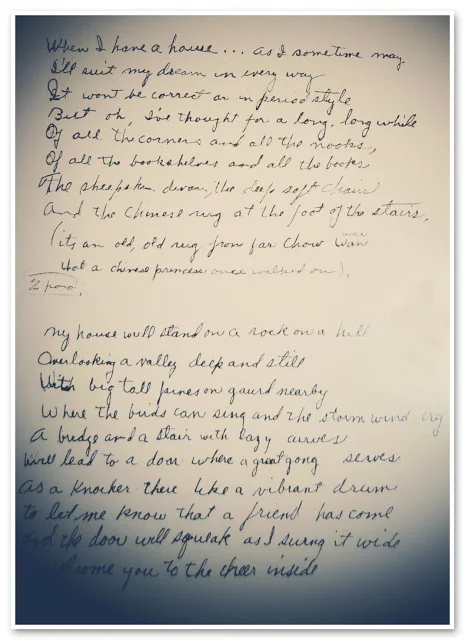 When I have a house ... as I sometime may
I'll suit my dream in every way
It wont be correct or in period style
But oh, I've thought for a long, long while
Of all the corners and all the nooks,
Of all the bookshelves and all the books
The sheepskin, the deep soft chair
And the chinese rug at the foot of the stairs,
(its an old, old rug from far Chow Wan
that a chinese princess once walked on).
2 para.
my house will stand on a rock on a hill
Overlooking a valley deep and still
With big tall pines on gaurd nearby
Where the birds can sing and the storm wind cry
A bridge and a stair with lazy curves
Will lead to a door where a great gong serves
As a Knocker there like a vibrant drum
to let me know that a friend has come
and the door will squeak as I swing it wide
you to the cheer inside